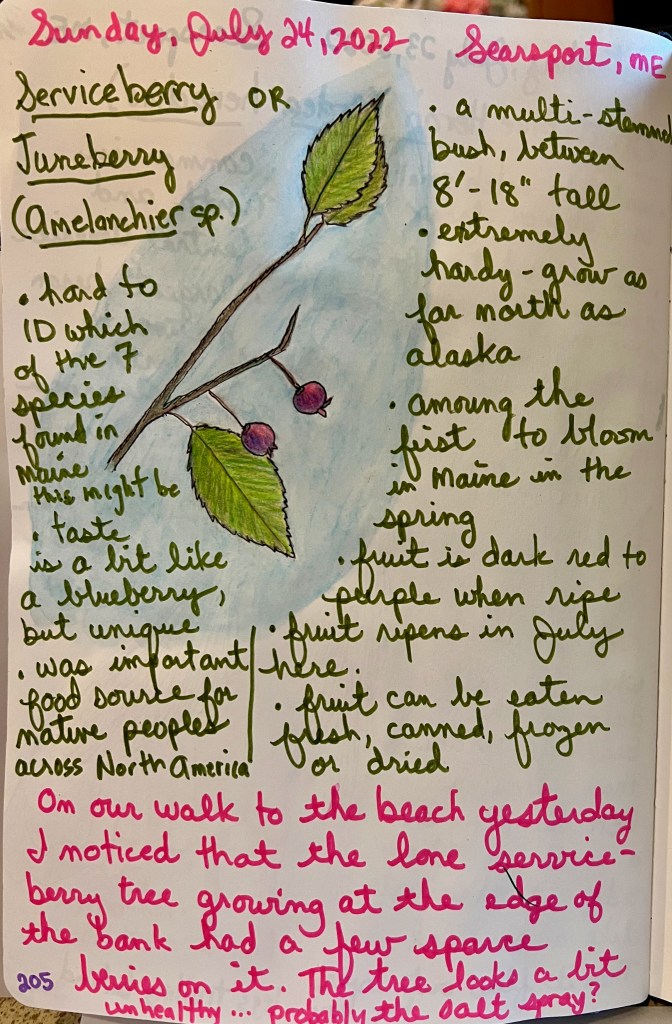 Sunday, July 24, 2022 Searsport, ME
Serviceberry OR
Juneberry
(Amelanchier sp.)
• hard to
ID which
of the 7
species
found in
Maine
this might be
• taste
is a bit like
a blueberry,
but unique
• was important
food source for
native peoples
across North America
• a multi-stemmed
bush, between
8'-18" tall
• extremely
hardy - grow as
far north as
alaska
• amoung the
first to bloom
in Maine in the
spring
• fruit is dark red to
purple when ripe
• fruit ripens in July
here.
• fruit can be eaten
fresh, canned, frozen
or dried
On our walk to the beach yesterday
I noticed that the lone service-
berry tree growing at the edge of
the bank had a few sparce
berries on it. The tree looks a bit
unhealthy... probably the salt spray?
205